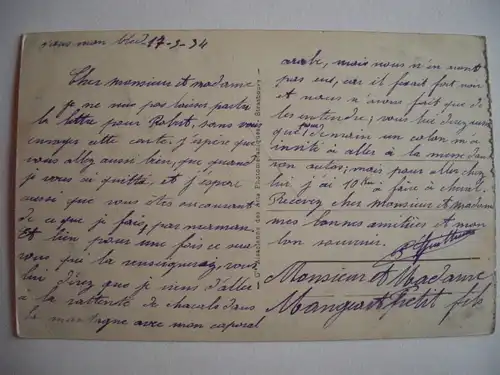 17-3-34
Cher monsieur et madame
je ne puis pas laisser partir
la lettre pour Robert, sans vous
envoyer cette carte, j'espère que
vous allez aussi bien, que quand
je vous ai quitté, et j'espère
aussi que vous êtes en courant
de ce que je fais, par maman.
Et bien pour une fois ce sera
vous qui la renseignerez, vous
lui direz que je viens d'aller
à la rattente de chacals dans
la montagne avec mon caporal
arabe, mais nous n'en avons
pas eus, car il fesait fort noir
et nous n'avons fait que de
les entendre; vous lui direz aussi
que demain un colon m'a
invité à aller à la messe dans
son auto; mais pour aller chez
lui j'ai 10 Km à faire à cheval.
Recevez cher monsieur et madame
mes bonnes amitiées et mon
bon souvenir.
Monsieur et Madame
Petit fils